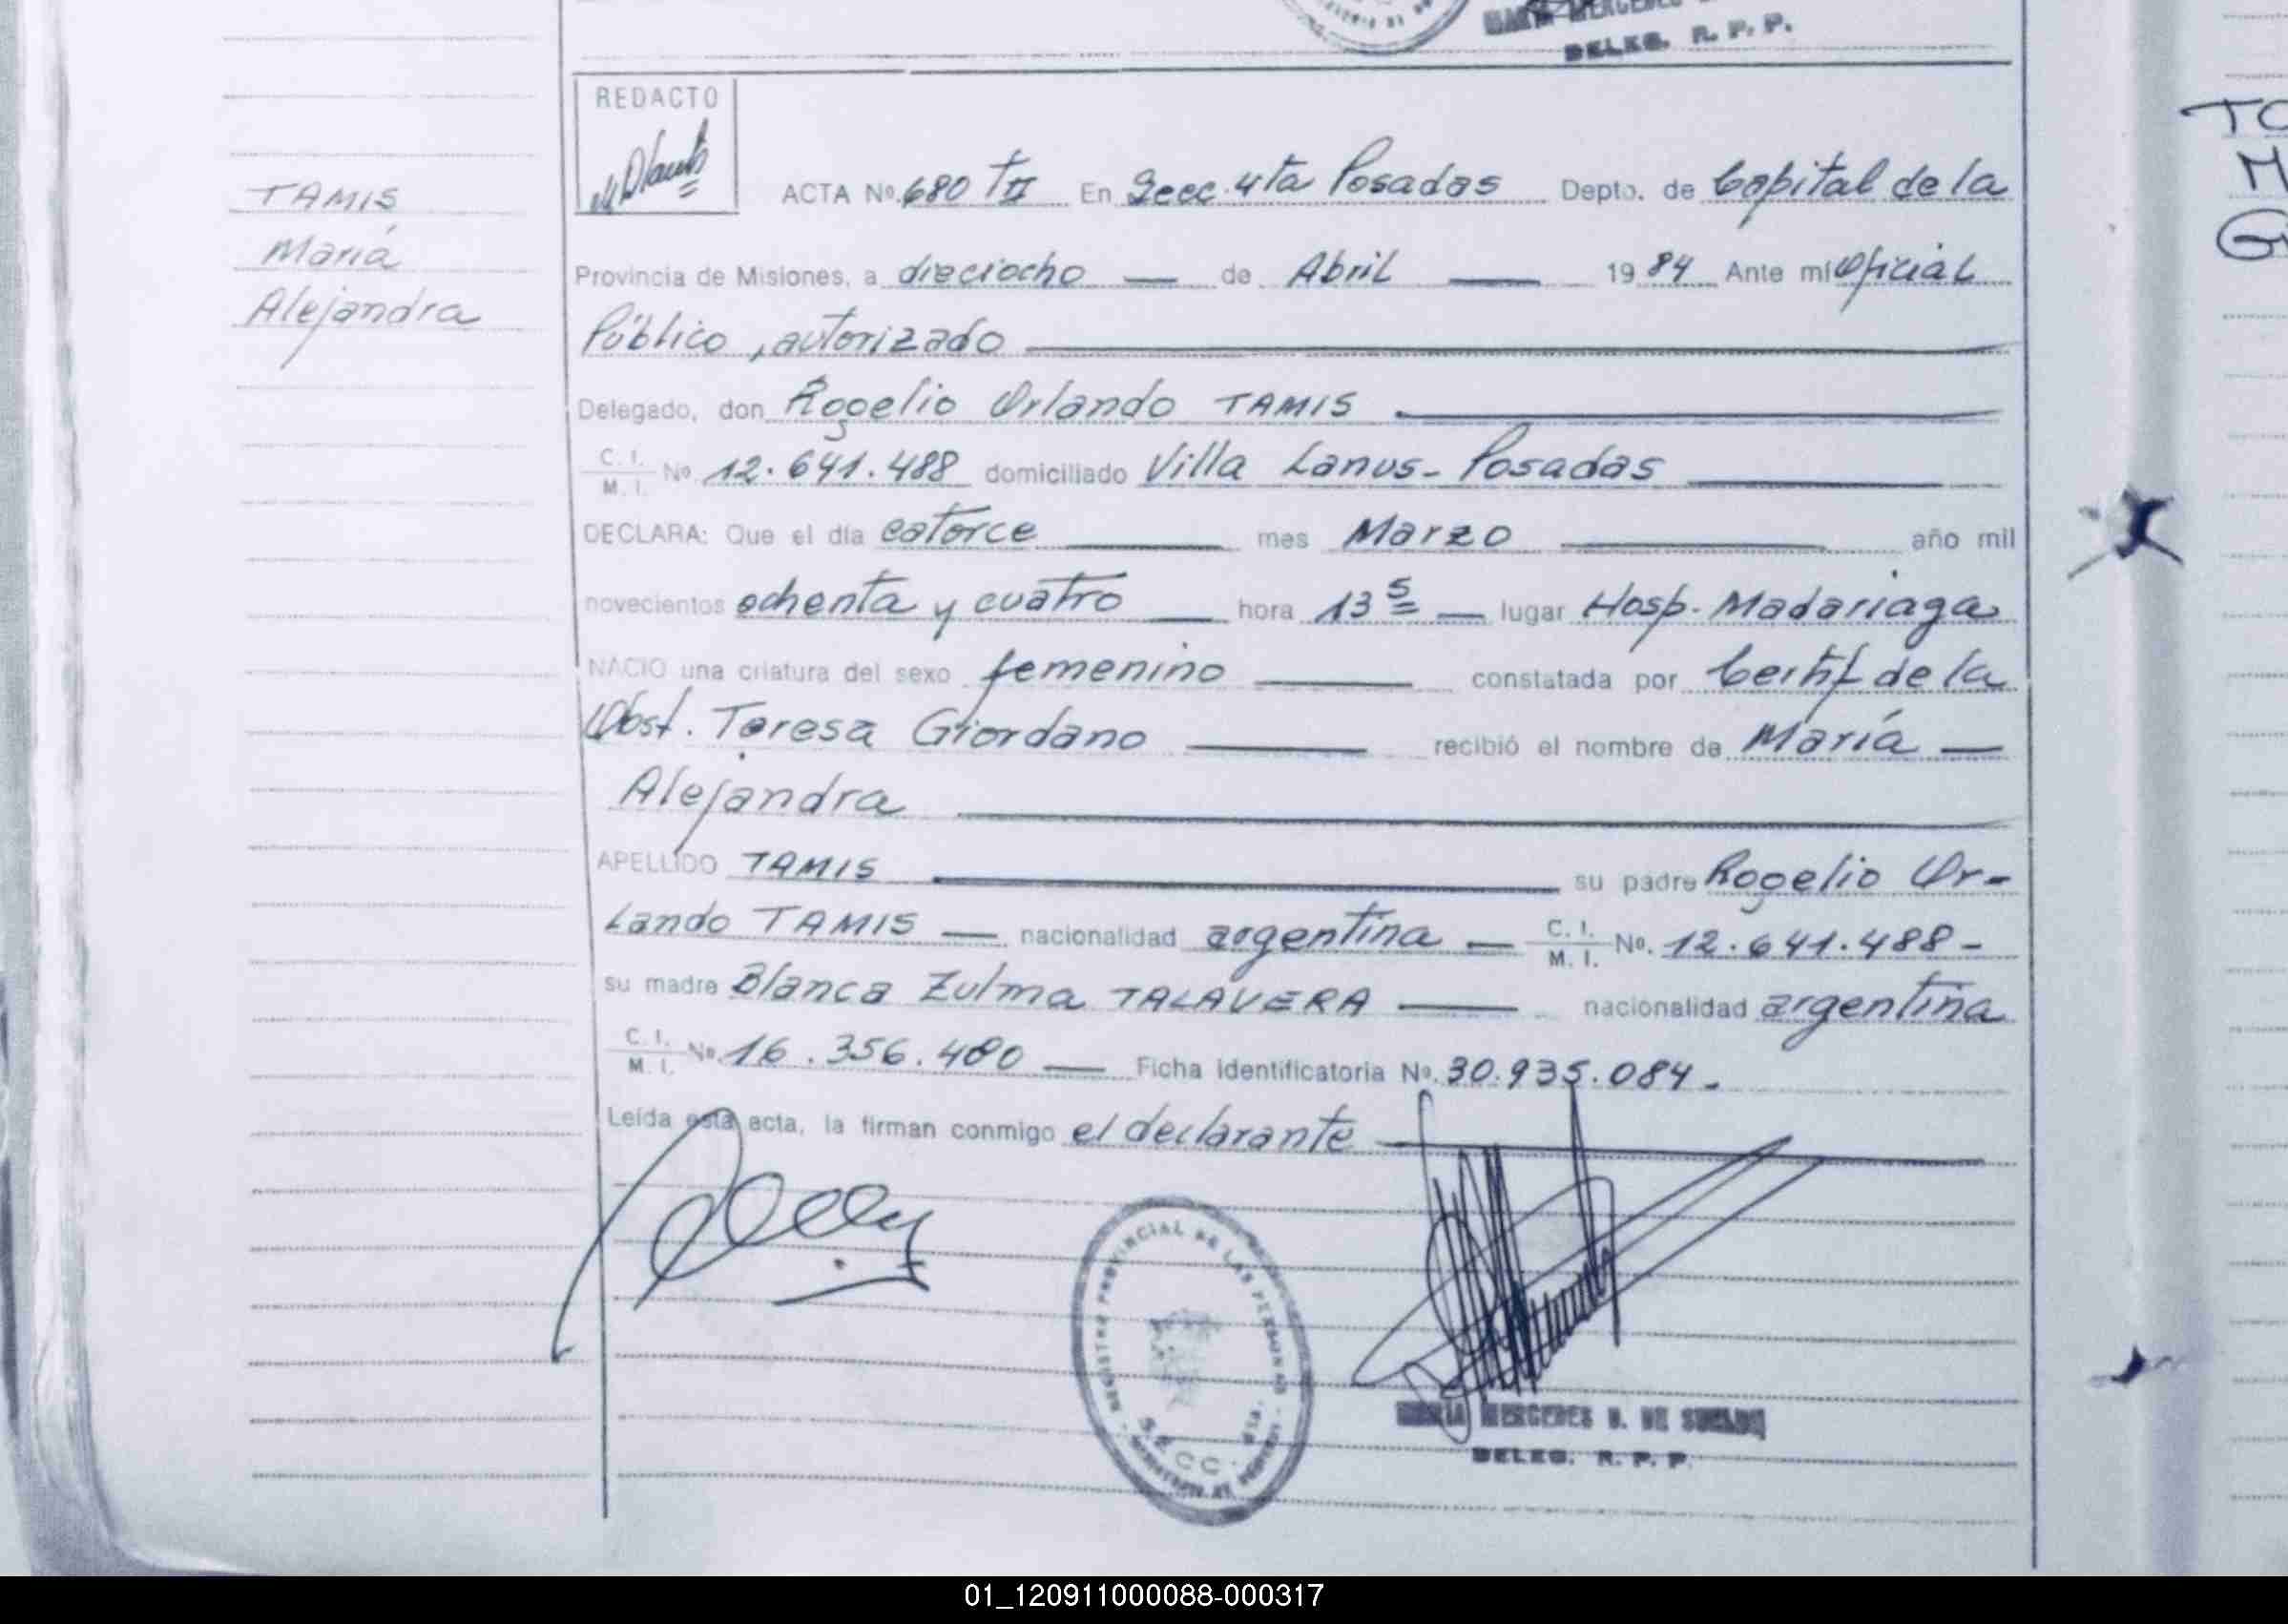 DELEG. R. P. P.
REDACTO
TAMIS
María
Alejandra
ACTA Nº. 680 TII En Secc. 4ta Posadas Depto. de Capital de la
Provincia de Misiones, a dieciocho — de Abril — 19 84 Ante mí Oficial
Público, autorizado
Delegado, don Rogelio Orlando TAMIS
C. I. / M. I. Nº 12.641.488 domiciliado Villa Lanus - Posadas
DECLARA: Que el día catorce mes Marzo año mil
novecientos ochenta y cuatro — hora 13 5 — lugar Hosp. Madariaga
NACIO una criatura del sexo femenino — constatada por Certif de la
Obst. Teresa Giordano — recibió el nombre de María —
Alejandra
APELLIDO TAMIS su padre Rogelio Or-
lando TAMIS — nacionalidad argentina — C. I. / M. I. Nº. 12.641.488 -
su madre Blanca Zulma TALAVERA — nacionalidad argentina
C. I. / M. I. Nº. 16.356.480 — Ficha identificatoria Nº. 30.935.084 -
Leída esta acta, la firman conmigo el declarante
REGISTRO PROVINCIAL DE LAS PERSONAS
SECC. 4ta.
MERCEDES
DELEG. R. P. P.
01_120911000088-000317